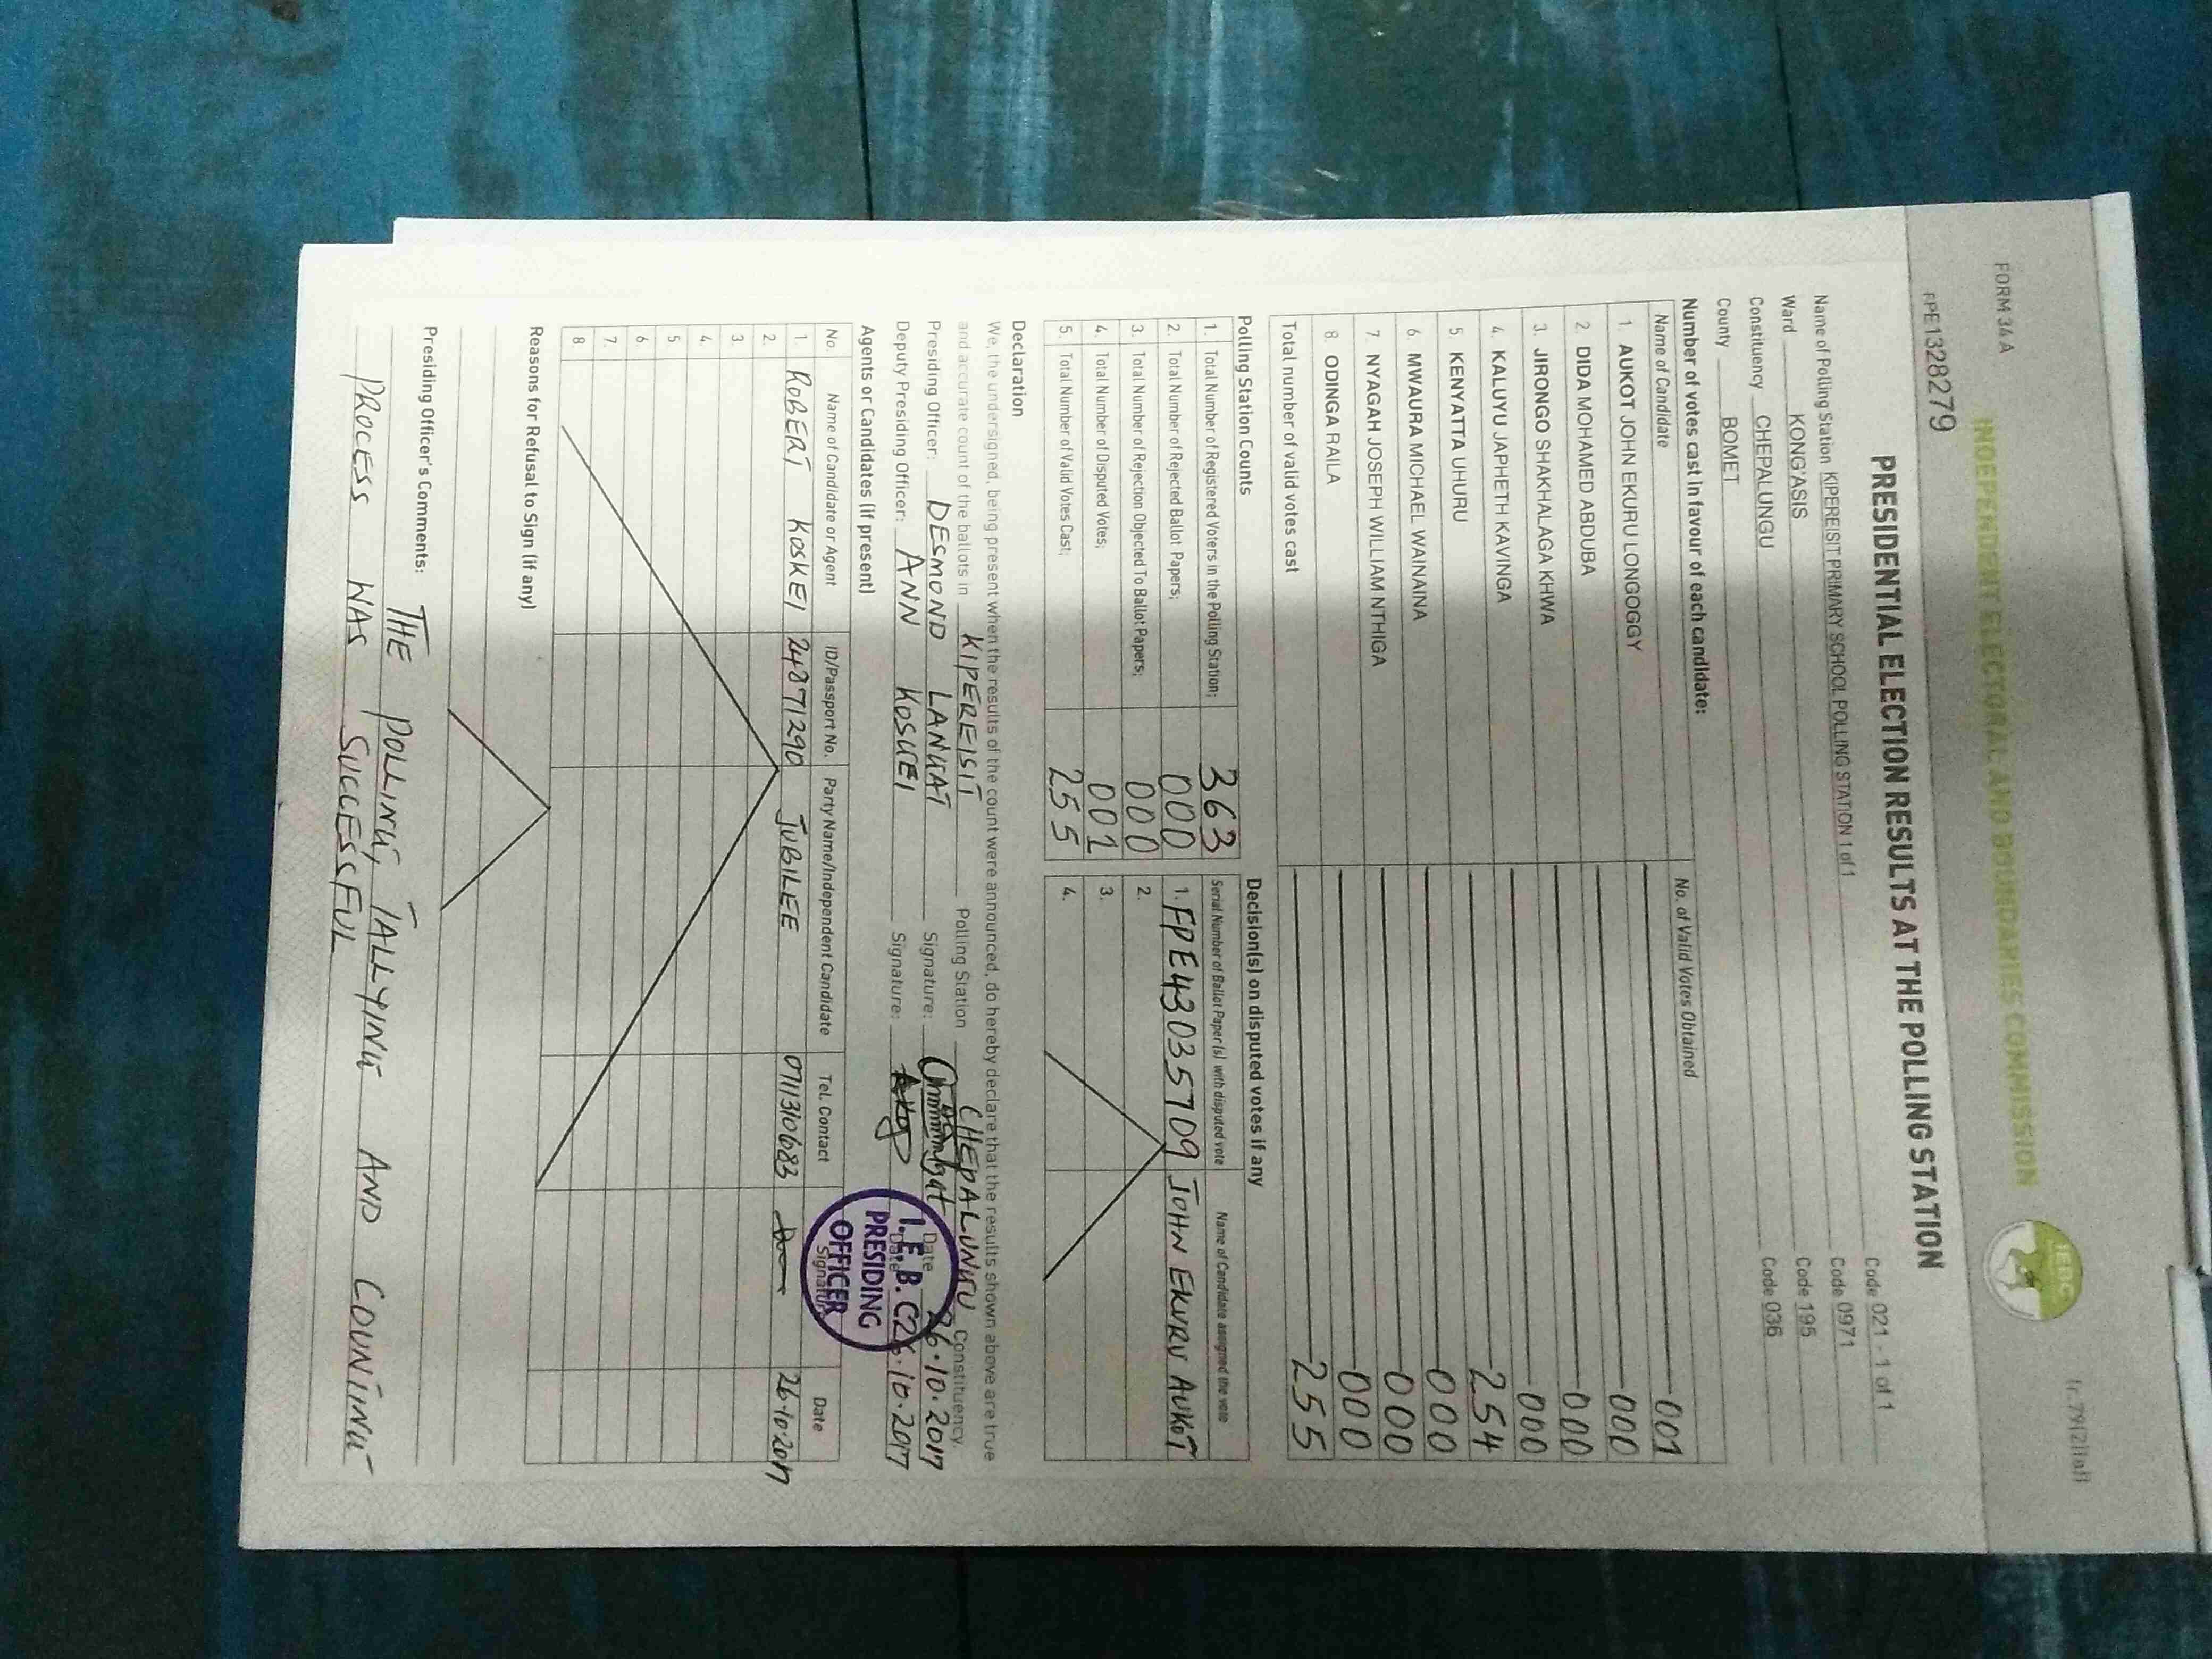 FORM 34A
Ir.79(2)(a)
INDEPENDENT ELECTORAL AND BOUNDARIES COMMISSION
IEBC
FPE1328279
PRESIDENTIAL ELECTION RESULTS AT THE POLLING STATION
Name of Polling Station KIPEREISIT PRIMARY SCHOOL POLLING STATION 1 of 1 Code 021 - 1 of 1
Ward KONG'ASIS Code 0971
Constituency CHEPALUNGU Code 195
County BOMET Code 036
Number of votes cast in favour of each candidate:
Name of Candidate No. of Valid Votes Obtained
1. AUKOT JOHN EKURU LONGOGGY 001
2. DIDA MOHAMED ABDUBA 000
3. JIRONGO SHAKHALAGA KHWA 000
4. KALUYU JAPHETH KAVINGA 000
5. KENYATTA UHURU 254
6. MWAURA MICHAEL WAINAINA 000
7. NYAGAH JOSEPH WILLIAM NTHIGA 000
8. ODINGA RAILA 000
Total number of valid votes cast 255
Polling Station Counts
1. Total Number of Registered Voters in the Polling Station; 363
2. Total Number of Rejected Ballot Papers; 000
3. Total Number of Rejection Objected To Ballot Papers; 000
4. Total Number of Disputed Votes; 001
5. Total Number of Valid Votes Cast; 255
Decision(s) on disputed votes if any
Serial Number of Ballot Paper(s) with disputed vote Name of Candidate assigned the vote
1. FPE43035709 JOHN EKURU AUKOT
2.
3.
4.
Declaration
We, the undersigned, being present when the results of the count were announced, do hereby declare that the results shown above are true
and accurate count of the ballots in KIPEREISIT Polling Station CHEPALUNGU Constituency.
Presiding Officer: DESMOND LANGAT Signature: Date 26.10.2017
Deputy Presiding Officer: ANN KOSGEI Signature: Date 26.10.2017
I.E.B.C
PRESIDING
OFFICER
Agents or Candidates (if present)
No. Name of Candidate or Agent ID/Passport No. Party Name/Independent Candidate Tel. Contact Signature Date
1 ROBERT KOSKEI 24871290 JUBILEE 0711310683 26.10.2017
2.
3.
4.
5.
6.
7.
8.
Reasons for Refusal to Sign (if any)
Presiding Officer's Comments: THE POLLING, TALLYING AND COUNTING
PROCESS WAS SUCCESSFUL